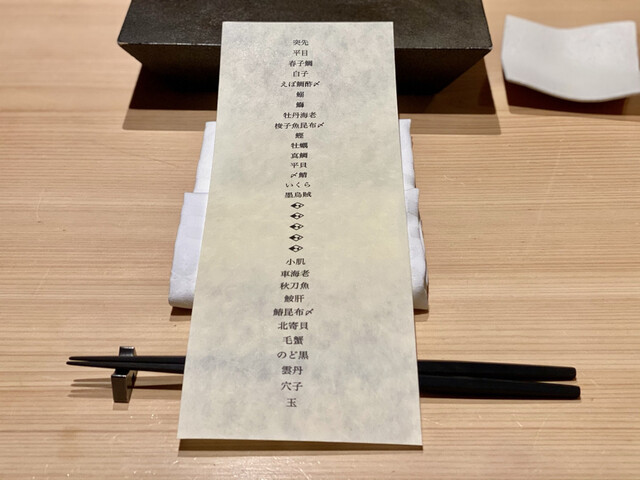 突先
平目
春子鯛
白子
えぼ鯛酢〆
鰤
牡丹海老
梭子魚昆布〆
鰹
牡蠣
真鯛
平貝
〆鯖
いくら
墨烏賊
小肌
車海老
秋刀魚
鮟肝
鰆昆布〆
北寄貝
毛蟹
のど黒
雲丹
穴子
玉